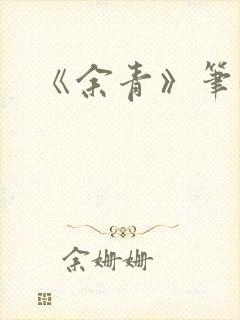 《余青》筆
余姗姗